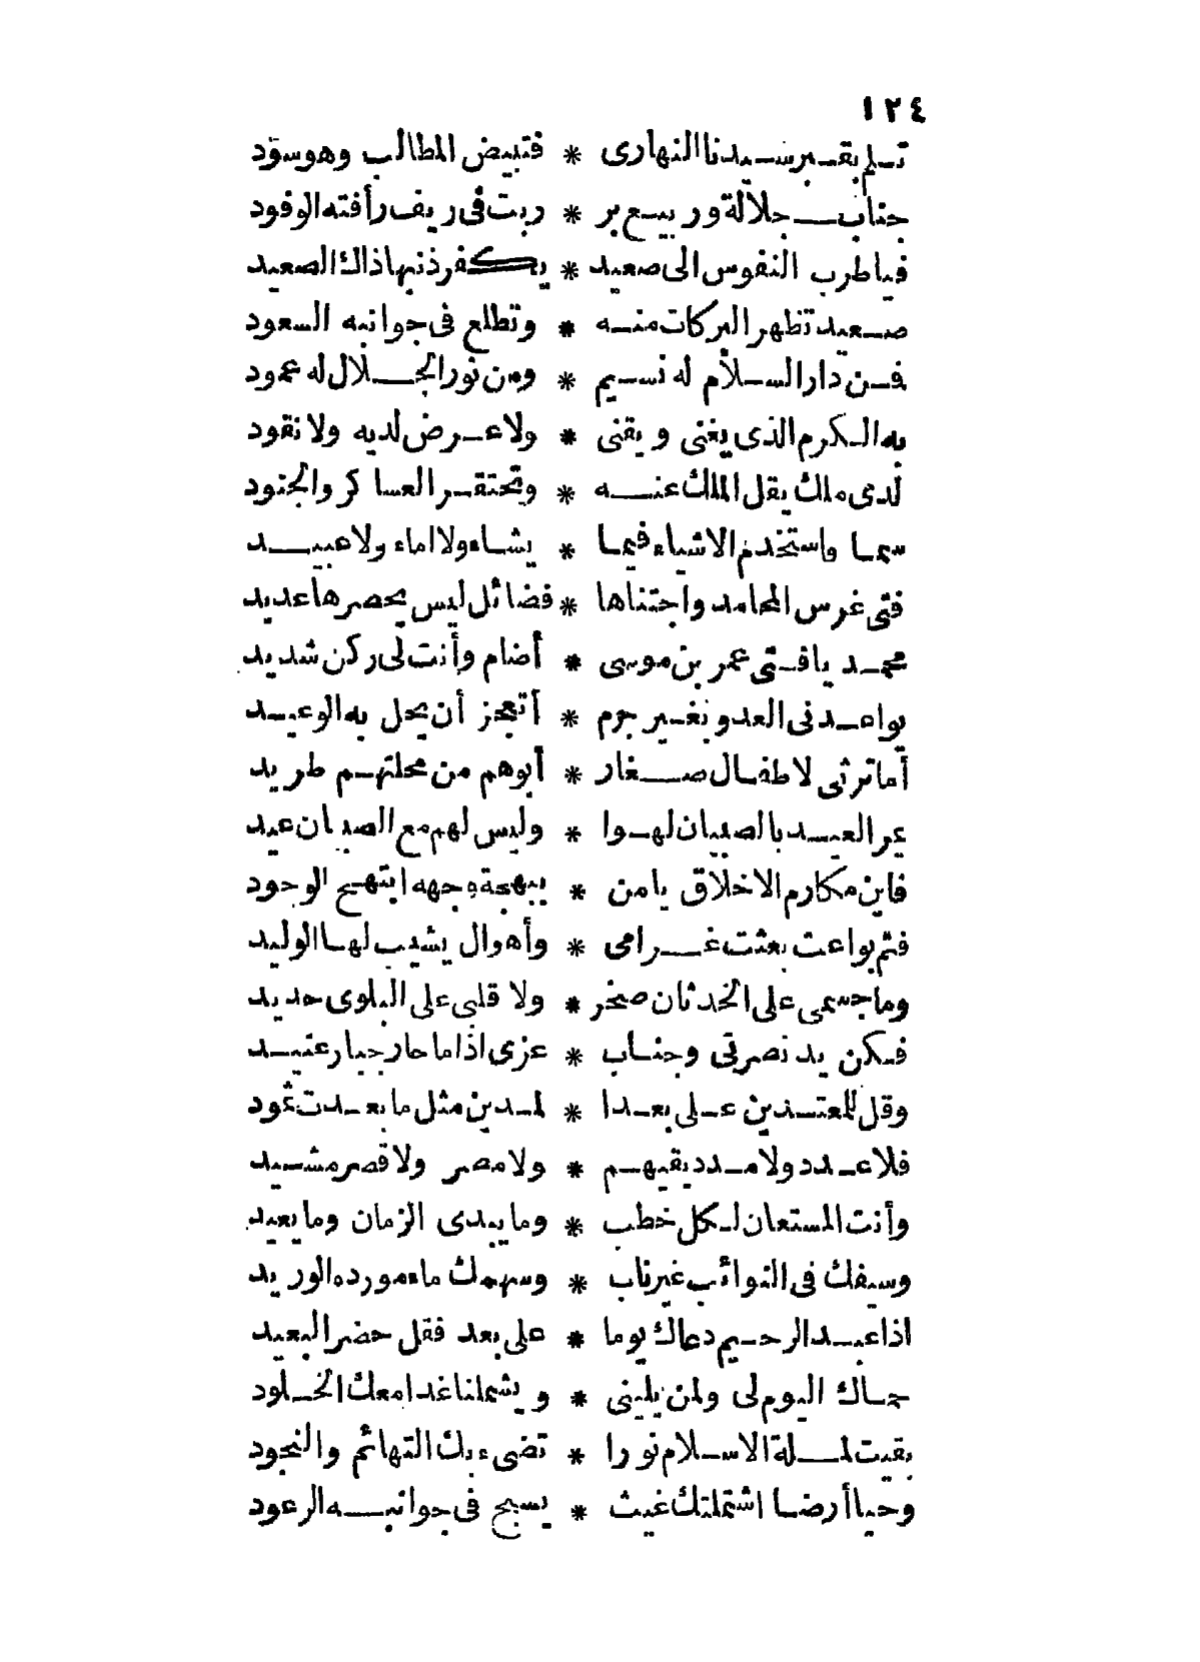 ١٢٤
تلم بقبر سيدنا النهارى * فتبيض المطالب وهو سود
جناب جلالة وربيع بر * ربت فى ريف رأفته الوفود
فياطرب النفوس الى صعيد * يكفر ذنبها ذاك الصعيد
صعيد تظهر البركات منه * وتطلع فى جوانبه السعود
فمن دار السلام له نسيم * ومن نور الجلال له عمود
به الكرم الذى يغنى ويقنى * ولا عرض لديه ولا نقود
لدى ملك يقل الملك عنه * وتحتقر العساكر والجنود
سما واستخدم الاشياء فيما * يشاء ولا اماء ولا عبيد
فتى غرس المحامد واجتناها * فضائل ليس يحصرها عديد
محمد يافتى عمر بن موسى * أضام وأنت لى ركن شديد
يواعدنى العدو بغير جرم * أتعجز أن يحل به الوعيد
أما ترثى لاطفال صغار * أبوهم من محلتهم طريد
يمر العيد بالصبيان لهوا * وليس لهم مع الصبيان عيد
فاين مكارم الاخلاق يامن * ببهجة وجهه ابتهج الوجود
فثم بواعث بعثت غرامى * وأهوال يشيب لها الوليد
وماجسمى على الحدثان صخر * ولا قلبى على البلوى حديد
فكن يد نصرتى وجناب * عزى اذا ماحار جبار عنيد
وقل للمعتدين على بعدا * لمدين مثل ما بعدت ثمود
فلا عدد ولا مدد يقيهم * ولا مصر ولا قصر مشيد
وأنت المستعان لكل خطب * وما يبدى الزمان وما يعيد
وسيفك فى النوائب غير ناب * وسهمك ماء مورده الوريد
اذا عبد الرحيم دعاك يوما * على بعد فقل حضر البعيد
حماك اليوم لى ولمن يلينى * ويشملنا غدا معك الخلود
بقيت لملة الاسلام نورا * تضىء بك التهائم والنجود
وحيا أرضا اشتملتك غيث * يسبح فى جوانبه الرعود